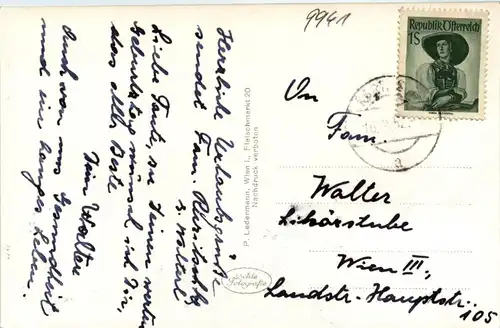 9941
Herzliche Urlaubsgrüße
sendet Fam.
u. Walter
Liebe Tante, zu Deinem werten
Geburtstag wünsch ich Dir,
das alles Beste
Dein Walter
Auch von uns Gesundheit
und ein langes Leben.
P. Ledermann, Wien I., Fleischmarkt 20
Nachdruck verboten
Echte
Fotografie
Republik Österreich
1S
An
Fam.
Walter
Likörstube
Wien III,
Landstr. Hauptstr.
105